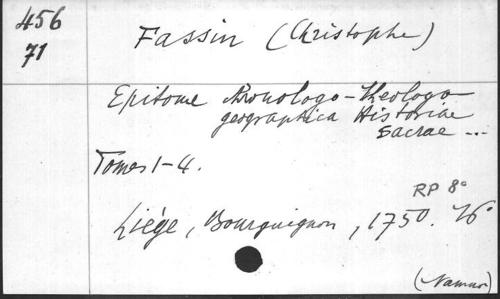 456
71
Fassin (Christophe)
Epitome Chronologo-Theologo
geographica Historiae
Sacrae ...
Tomes 1-4.
RP 8°
Liége, Bourguignon, 1750.
(Namur)